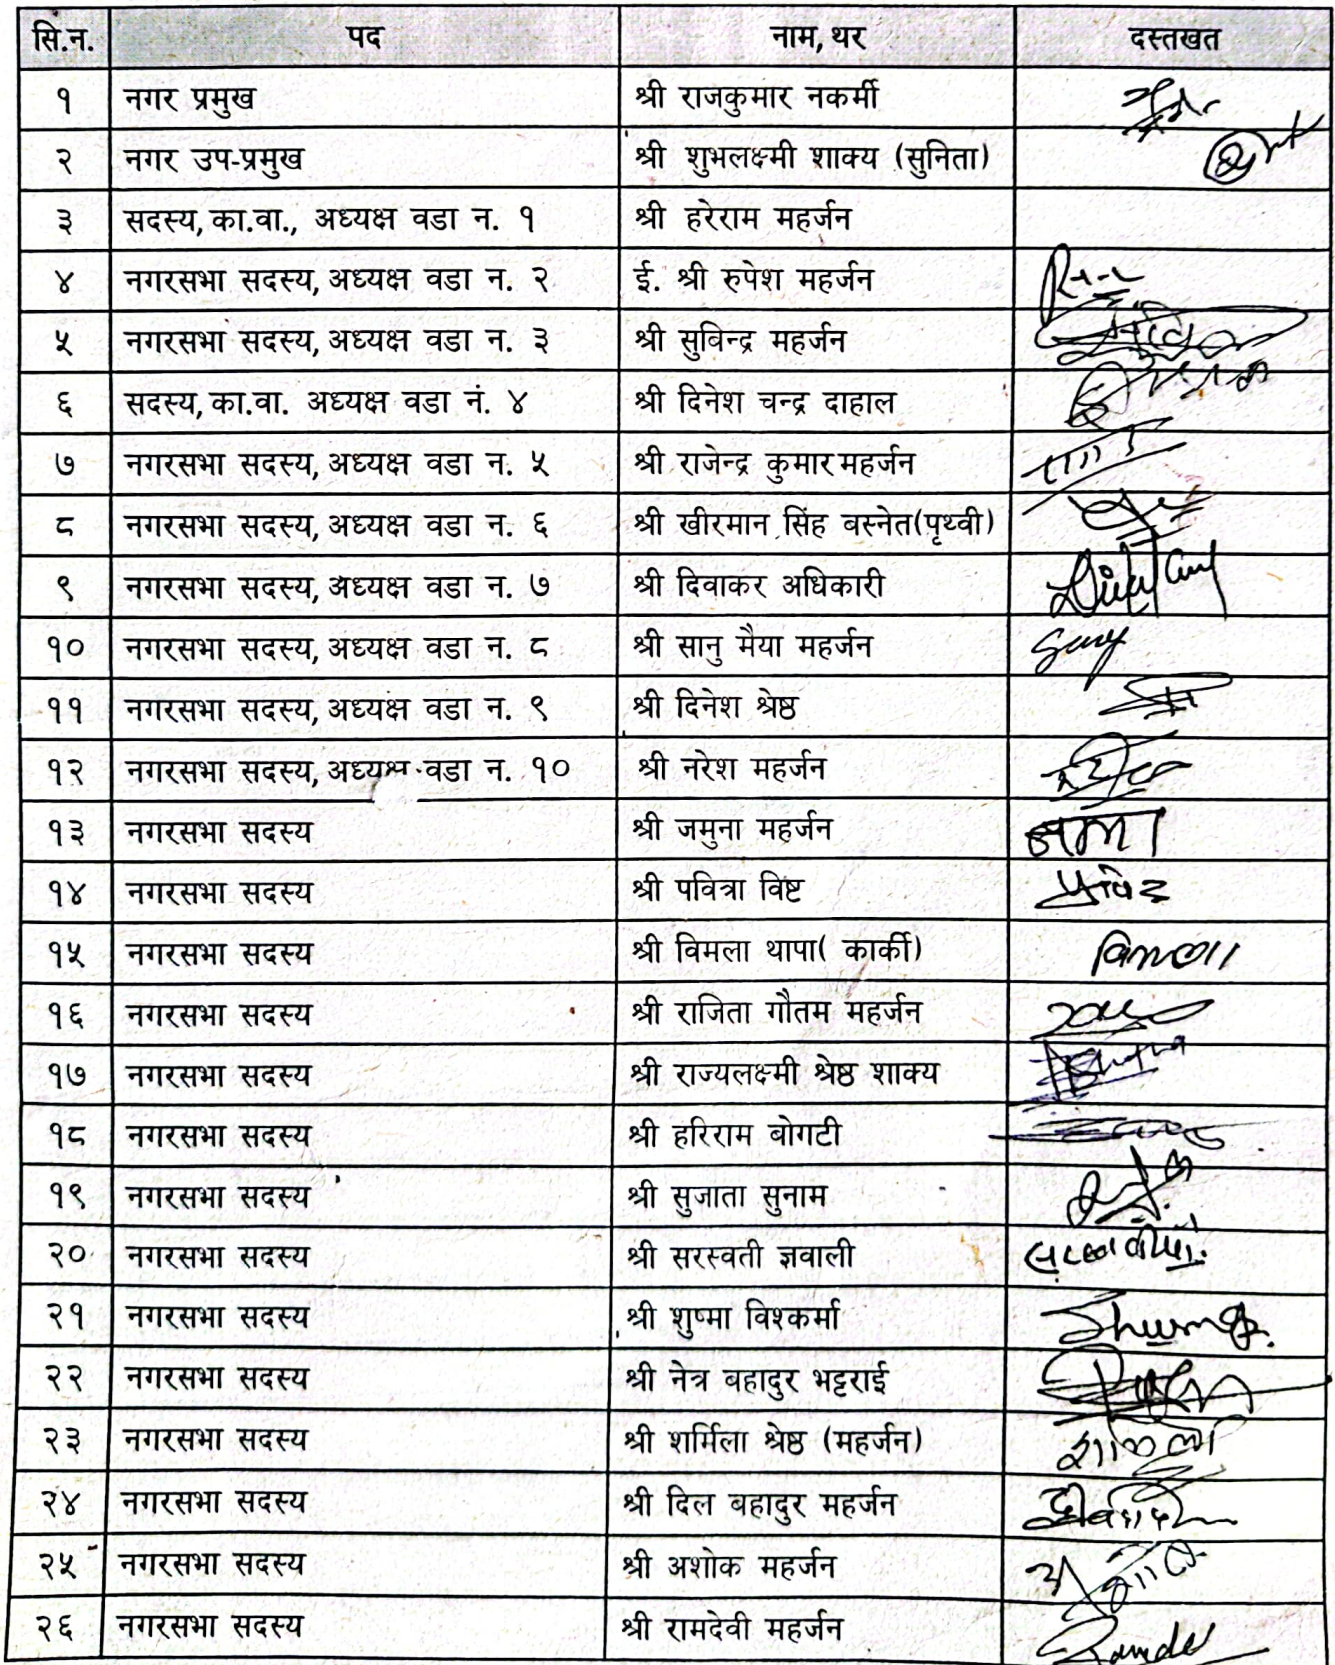 सि.न. पद नाम, थर दस्तखत
१ नगर प्रमुख श्री राजकुमार नकर्मी
२ नगर उप-प्रमुख श्री शुभलक्ष्मी शाक्य (सुनिता)
३ सदस्य, का.वा., अध्यक्ष वडा न. १ श्री हरेराम महर्जन
४ नगरसभा सदस्य, अध्यक्ष वडा न. २ ई. श्री रुपेश महर्जन
५ नगरसभा सदस्य, अध्यक्ष वडा न. ३ श्री सुविन्द्र महर्जन
६ सदस्य, का.वा. अध्यक्ष वडा नं. ४ श्री दिनेश चन्द्र दाहाल
७ नगरसभा सदस्य, अध्यक्ष वडा न. ५ श्री राजेन्द्र कुमार महर्जन
८ नगरसभा सदस्य, अध्यक्ष वडा न. ६ श्री खीरमान सिंह बस्नेत(पृथ्वी)
९ नगरसभा सदस्य, अध्यक्ष वडा न. ७ श्री दिवाकर अधिकारी
१० नगरसभा सदस्य, अध्यक्ष वडा न. ८ श्री सानु मैया महर्जन
११ नगरसभा सदस्य, अध्यक्ष वडा न. ९ श्री दिनेश श्रेष्ठ
१२ नगरसभा सदस्य, अध्यक्ष वडा न. १० श्री नरेश महर्जन
१३ नगरसभा सदस्य श्री जमुना महर्जन
१४ नगरसभा सदस्य श्री पवित्रा विष्ट
१५ नगरसभा सदस्य श्री विमला थापा( कार्की) विमला
१६ नगरसभा सदस्य श्री राजिता गौतम महर्जन
१७ नगरसभा सदस्य श्री राज्यलक्ष्मी श्रेष्ठ शाक्य
१८ नगरसभा सदस्य श्री हरिराम बोगटी
१९ नगरसभा सदस्य श्री सुजाता सुनाम
२० नगरसभा सदस्य श्री सरस्वती ज्ञवाली
२१ नगरसभा सदस्य श्री शुष्मा विश्कर्मा
२२ नगरसभा सदस्य श्री नेत्र बहादुर भट्टराई
२३ नगरसभा सदस्य श्री शर्मिला श्रेष्ठ (महर्जन)
२४ नगरसभा सदस्य श्री दिल बहादुर महर्जन
२५ नगरसभा सदस्य श्री अशोक महर्जन
२६ नगरसभा सदस्य श्री रामदेवी महर्जन